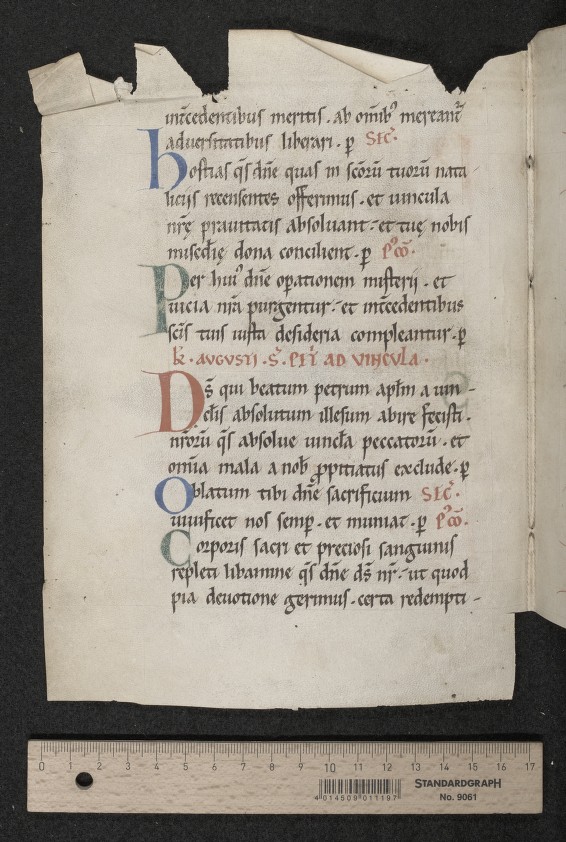 int̄cedentibus meritis . ab om̄ib᷒ mereant̄
adversitatibus liberari . ꝑ SEC̄.
hostias q̄s dn̄e quas in sc̄orū tuorū nata
liciis recensentes offerimus . et vincula
nr̄ę pravitatis absoluant . et tuę nobis
mised̄ię dona concilient . ꝑ P᷒ co̅.
Per hui᷒ dn̄e oꝑationem misterii . et
vicia nr̄a purgentur . et int̄cedentibus
sc̄is tuis iusta desideria compleantur . ꝑ
k̄ . AVGVSTI . S̄ . PET̄ AD VINCVLA .
Ds̄ qui beatum petrum apl̄m a vin-
cl̄is absolutum illesum abire fecisti .
nr̄orū q̄s absolve vincl̄a peccatorū . et
om̄ia mala a nob̄ ꝓpitiatus exclude . ꝑ
Oblatum tibi dn̄e sacrificium SEC̄.
vivificet nos semꝑ . et muniat . ꝑ P᷒ co̅.
Corporis sacri et preciosi sanguinis
repleti libamine q̄s dn̄e ds̄ nr̄ . ut quod
pia devotione gerimus . certa redempti-
0 1 2 3 4 5 6 7 8 9 10 11 12 13 14 15 16 17
4 014509 011197
STANDARDGRAPH
No. 9061